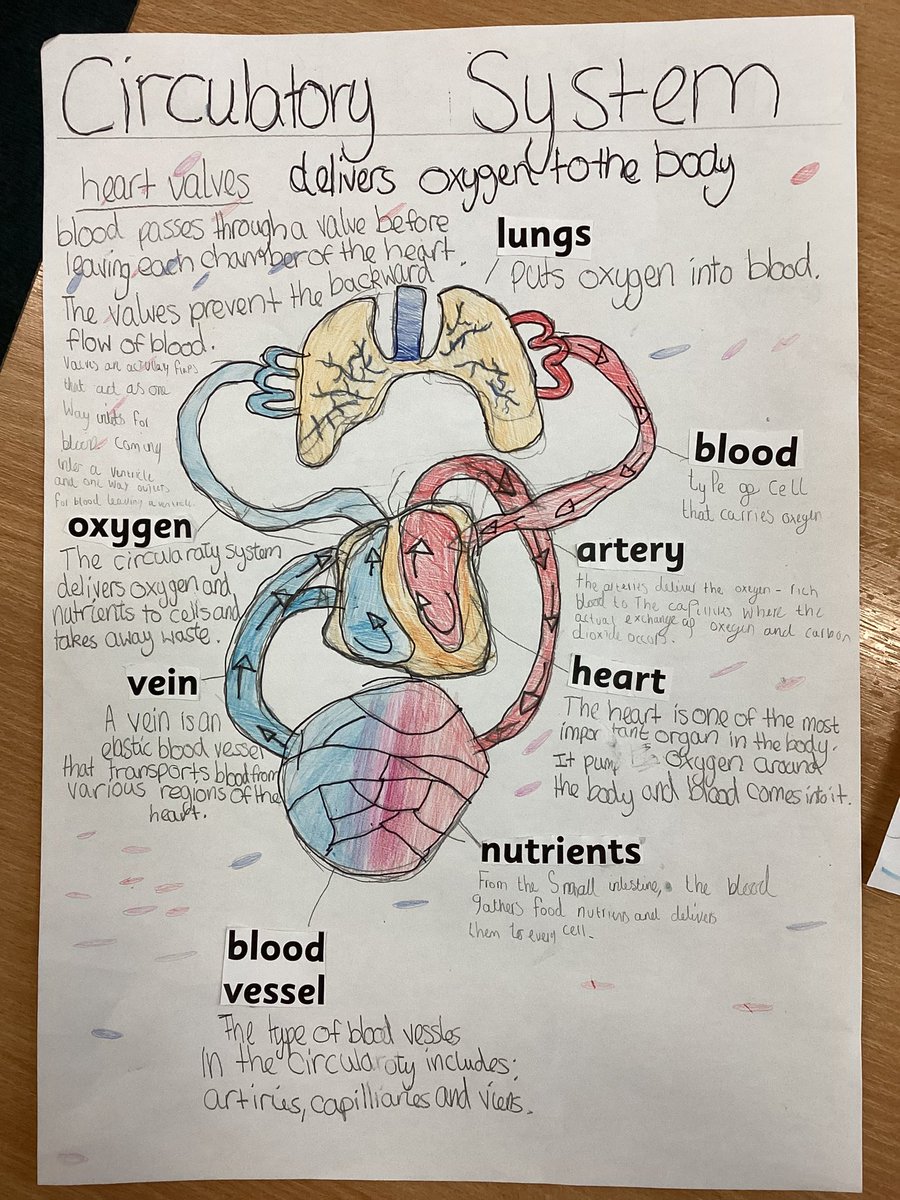 Circulatory System
delivers oxygen to the body
heart valves
blood passes through a valve before
leaving each chamber of the heart.
The valves prevent the backward
flow of blood.
Valves are actullay flaps
that act as one
way inlets for
blood coming
inter a ventricle
and one way outlets
for blood leaving a ventricle.
lungs
puts oxygen into blood.
blood
type of cell
that carries oxegen
oxygen
The circularoty system
delivers oxygen and
nutrients to cells and
takes away waste.
artery
the arteries deliver the oxegen-rich
blood to The capilliries where the
actual exchange of oxegen and carbon
dioxide occors.
vein
A vein is an
elastic blood vessel
that transports blood from
various regions of the
heart.
heart
The heart is one of the most
important organ in the body.
It pump oxygen around
the body and blood comes into it.
nutrients
From the Small intestine, the blood
gathers food nutrients and delivers
them to every cell.
blood
vessel
The type of blood vessles
In the circularoty includes:
artiries, capilliaries and viens.